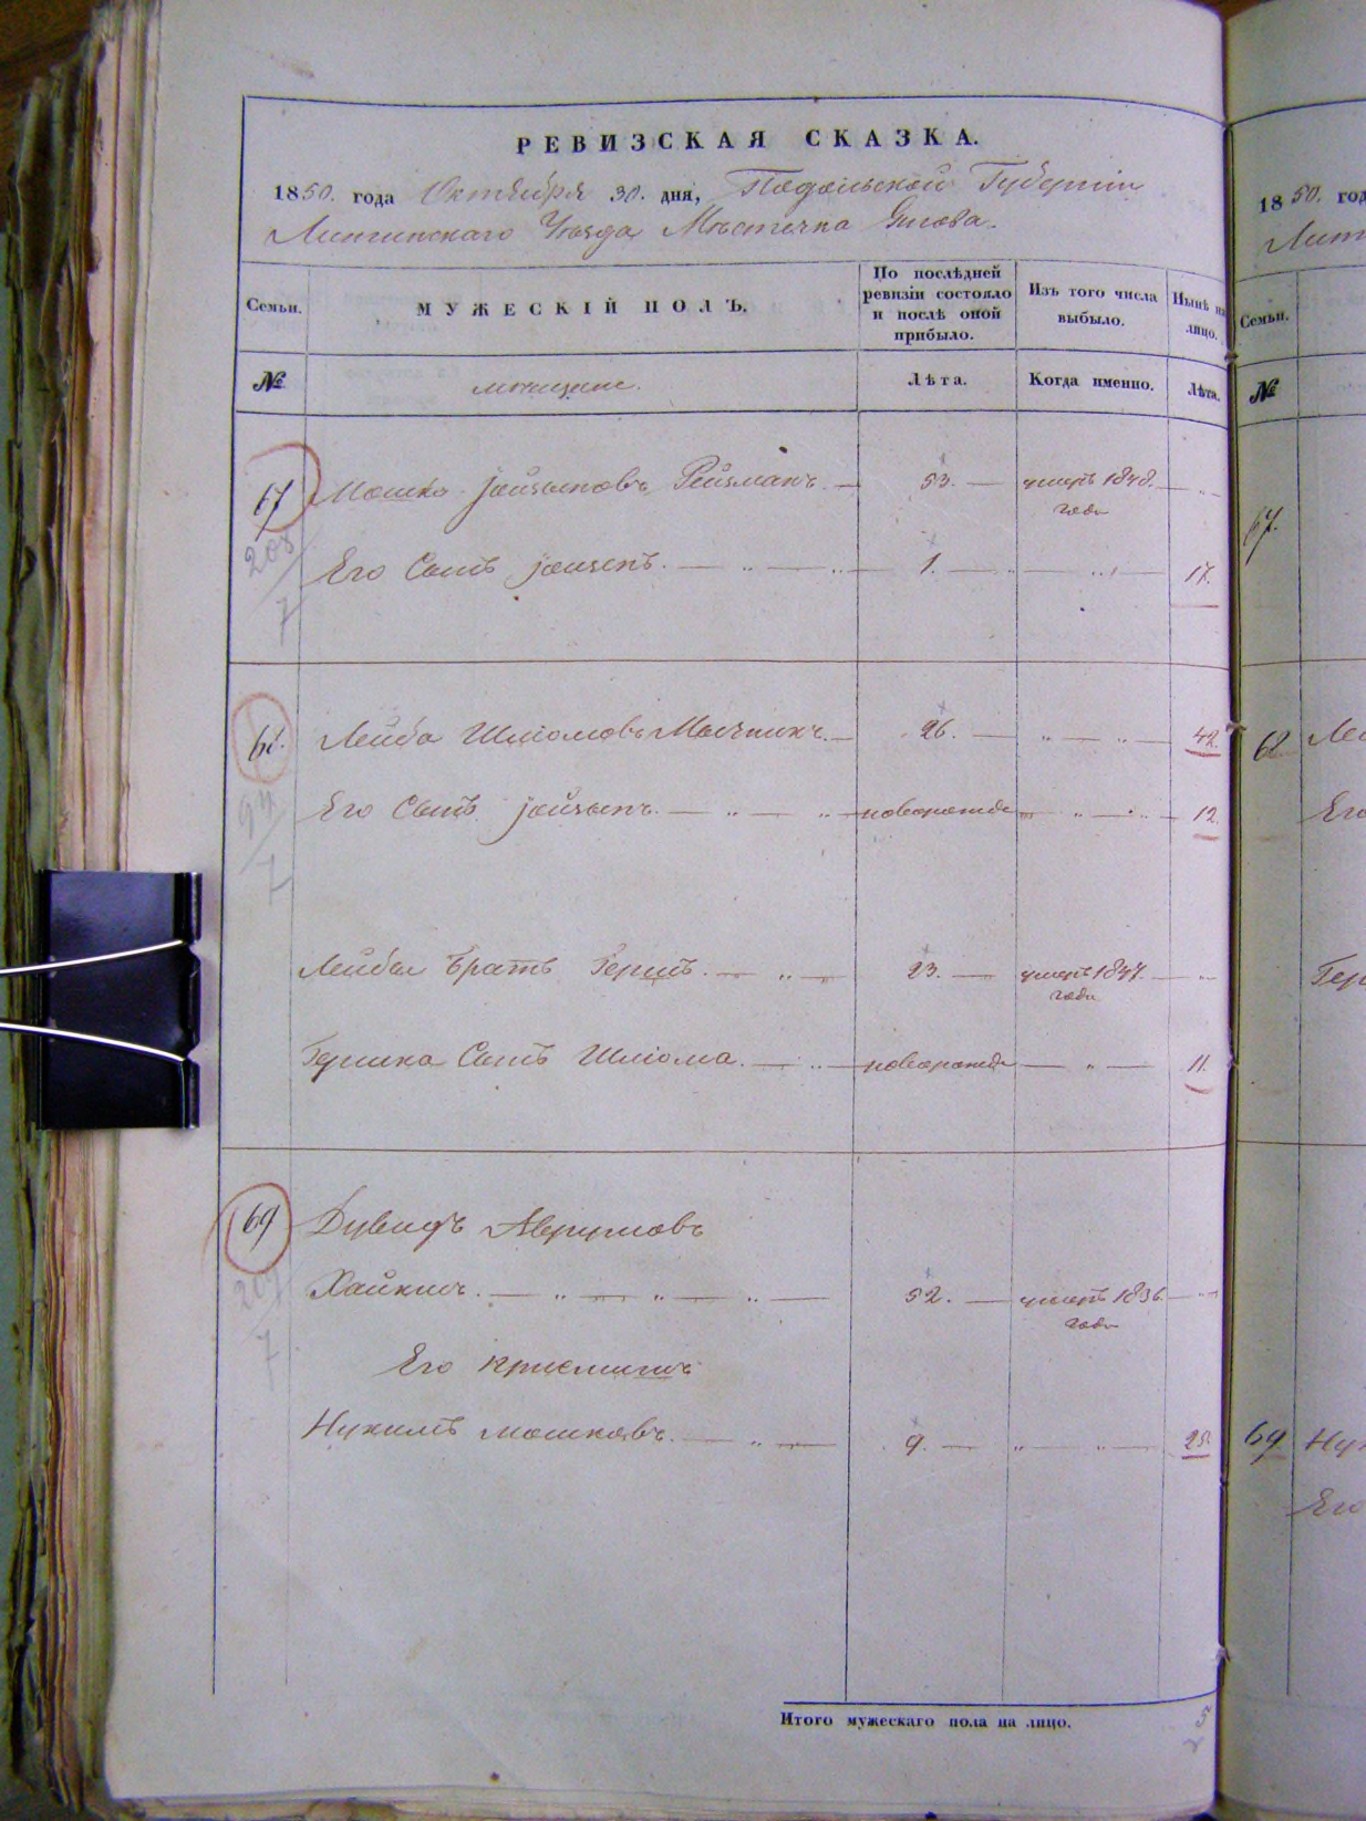 РЕВИЗСКАЯ СКАЗКА.
1850. года Октября 30. дня, Подольской Губерніи
Литинскаго Уѣзда Мѣстечка Янова.
Семьи. МУЖЕСКІЙ ПОЛЪ. По послѣдней ревизіи состояло и послѣ оной прибыло. Изъ того числа выбыло. Нынѣ на лицо.
№ мѣщане. Лѣта. Когда именно. Лѣта.
67 Мошко Іойзыповъ Рейзманъ. 53. умеръ 1848. года
208/7
Его Сынъ Іойзепъ. 1. 17.
68. Лейба Шліомовъ 26. 42.
94/7
Его Сынъ Іойзыпъ. новорожде 12.
Лейбы Братъ Гершъ. 23. умеръ 1847. года
Гершка Сынъ Шліома. новорожде 11.
69 Дувидъ Аврумовъ
Хайкисъ. 52. умеръ 1836. года
Его пріемышъ
Нухимъ Мошковъ. 9. 25.
Итого мужескаго пола на лицо.
1850. год
Лит
Семьи.
№
67.
68 Лей
Его
Гер
69 Нух
Его